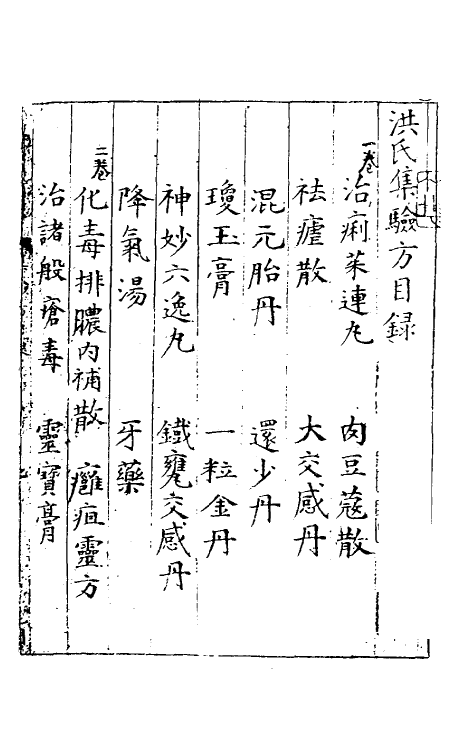 洪氏集驗方目録
一卷
治痢茱連丸 肉豆蔻散
祛瘧散 大交感丹
混元胎丹 還少丹
瓊玉膏 一粒金丹
神妙六逸丸 鐵甕交感丹
降氣湯 牙藥
二卷
化毒排膿内補散 癰疽靈方
治諸般瘡毒 靈寶膏